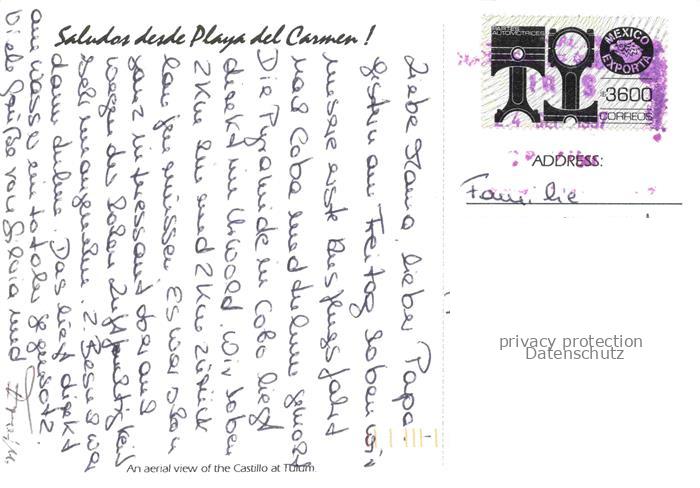 Saludos desde Playa del Carmen !
Liebe Mama, lieber Papa.
gestern am Freitag haben wir
unsere erste Ausflugsfahrt
nach Coba und Tulum gemacht
Die Pyramide in Coba liegt
direkt im Urwald. Wir haben
2 Km hin und 2 Km zurück
laufen müssen. Es war schon
ganz interessant aber auf
wegen der hohen Luftfeuchtigkeit
sehr unangenehm. 2. Besuch war
dann Tulum. Das liegt direkt
am Wasser ein totaler Gegensatz.
Viele Grüße von Silvia und
An aerial view of the Castillo at Tulum.
PARTES AUTOMOTRICES
MEXICO EXPORTA
$3600
CORREOS
ADDRESS:
Familie
privacy protection
Datenschutz